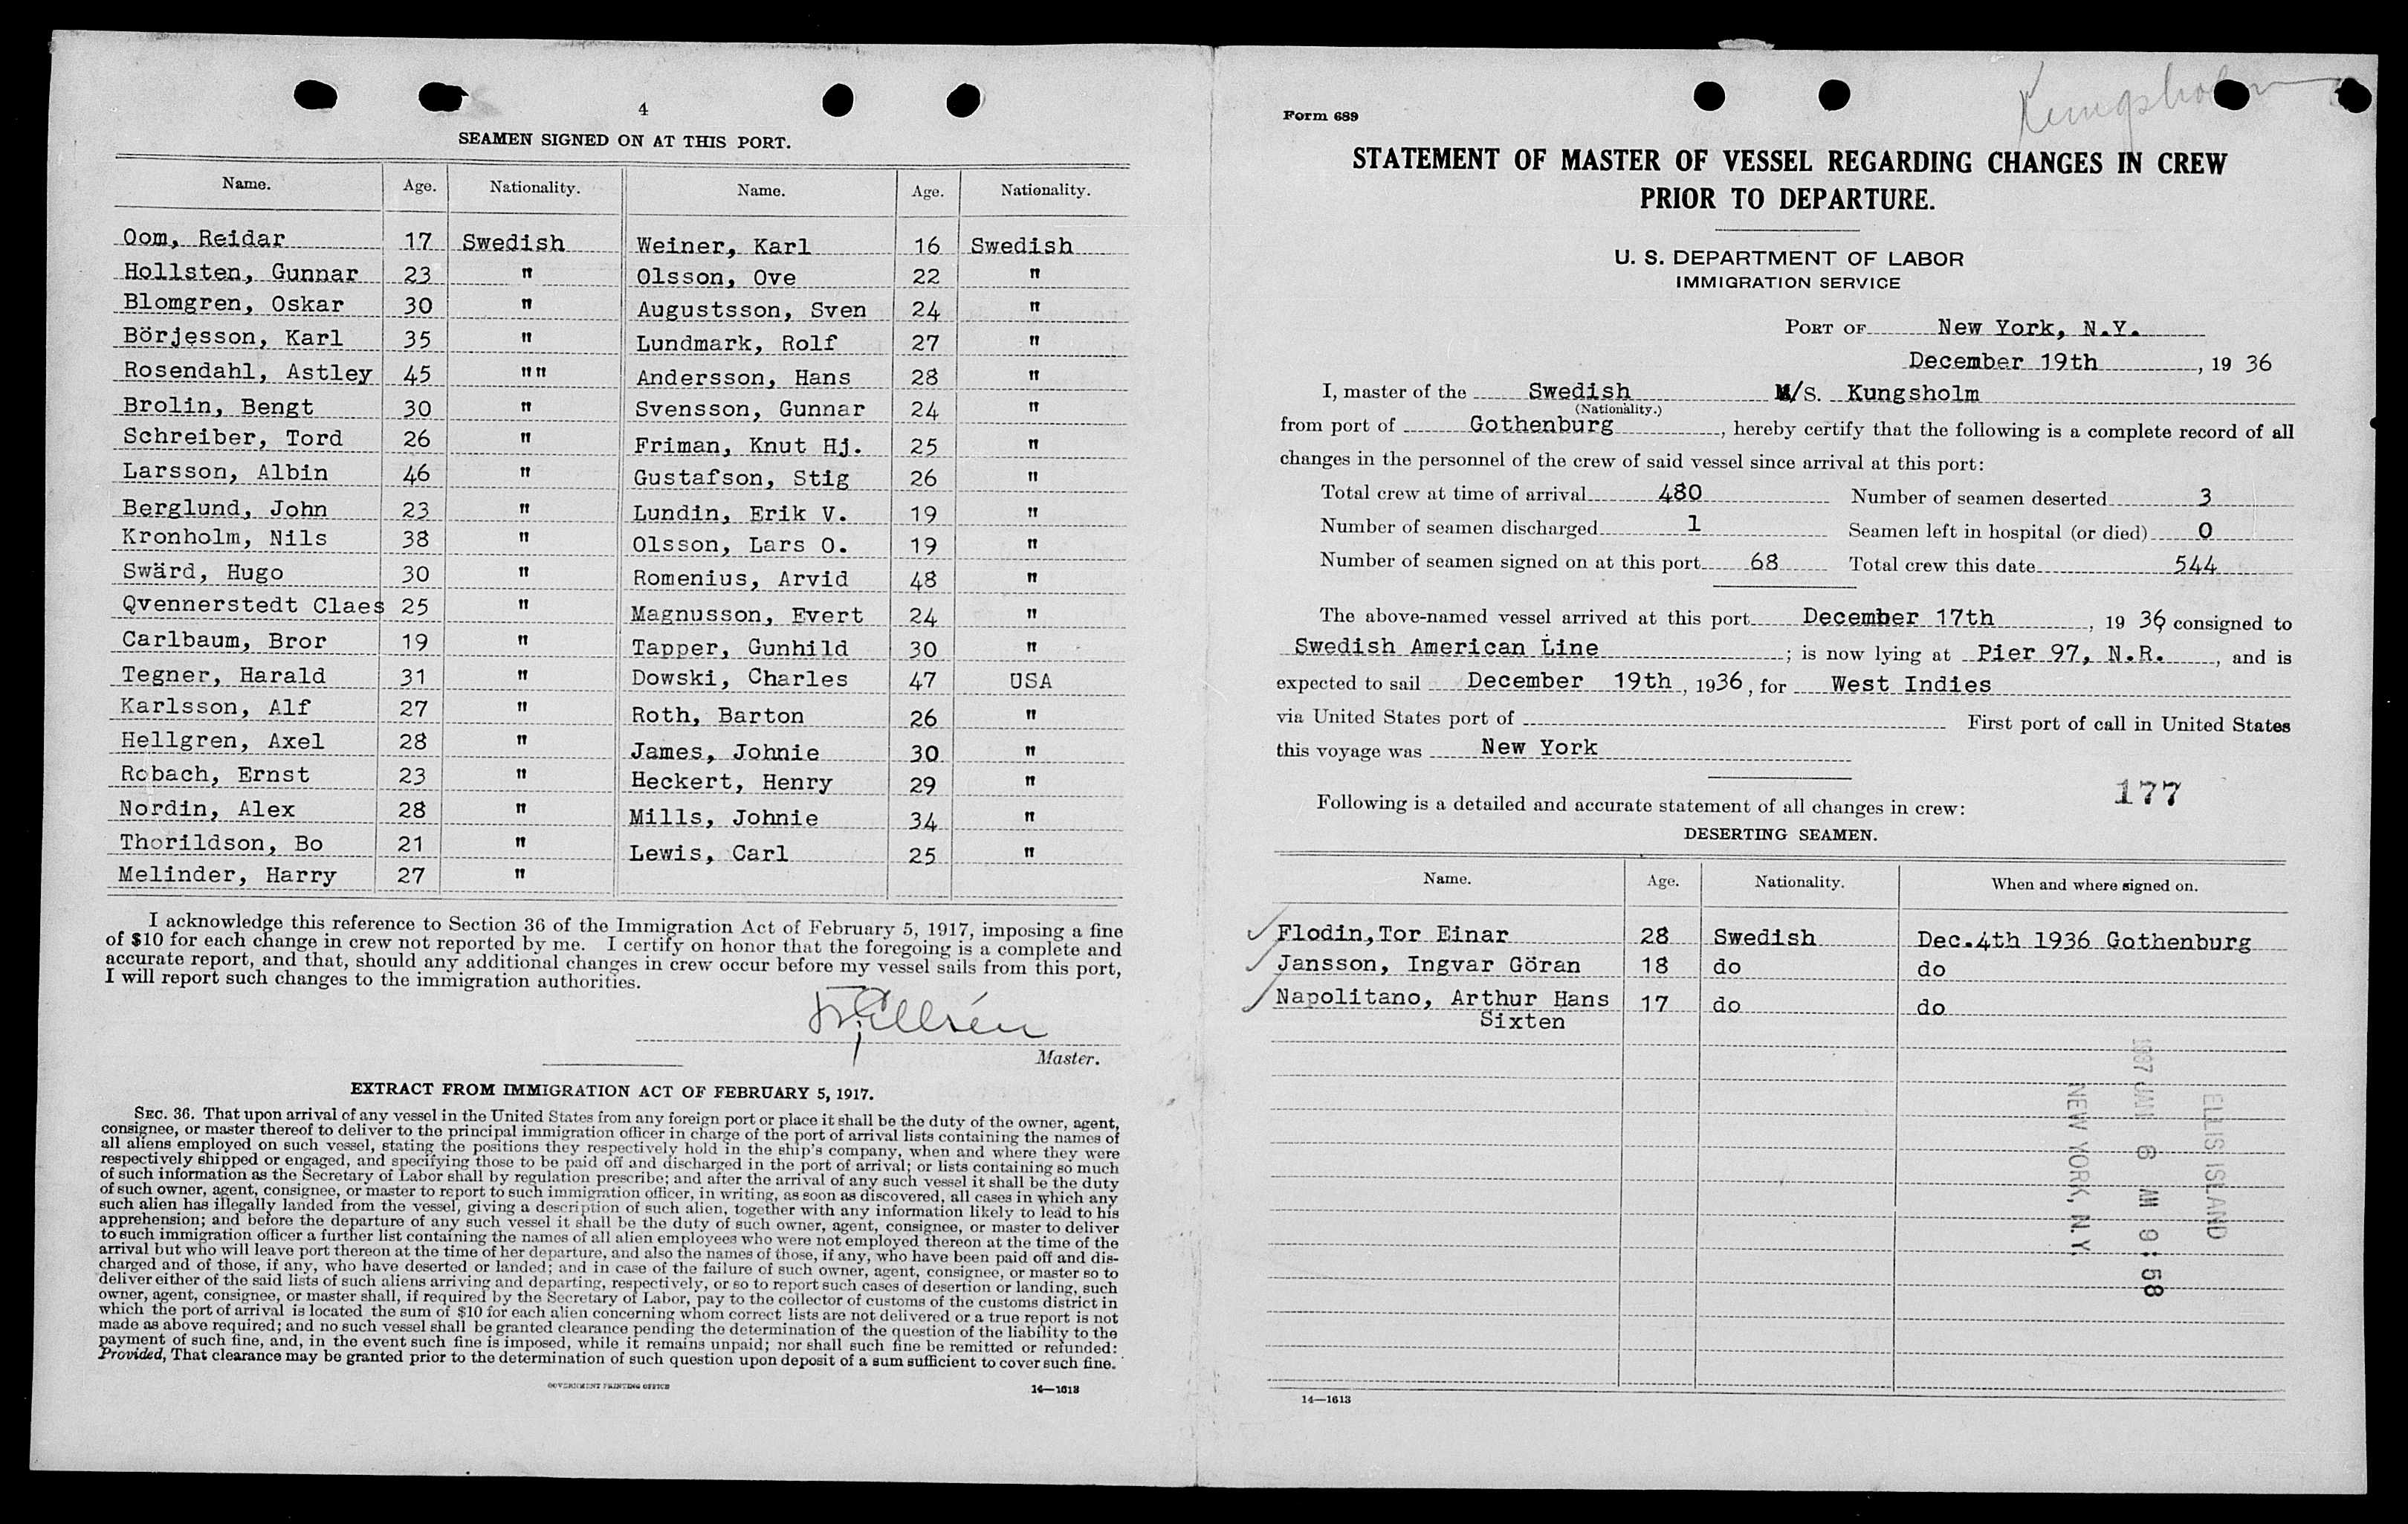 4
SEAMEN SIGNED ON AT THIS PORT.
Name. Age. Nationality. Name. Age. Nationality.
Oom, Reidar 17 Swedish Weiner, Karl 16 Swedish
Hollsten, Gunnar 23 " Olsson, Ove 22 "
Blomgren, Oskar 30 " Augustsson, Sven 24 "
Börjesson, Karl 35 " Lundmark, Rolf 27 "
Rosendahl, Astley 45 "" Andersson, Hans 28 "
Brolin, Bengt 30 " Svensson, Gunnar 24 "
Schreiber, Tord 26 " Friman, Knut Hj. 25 "
Larsson, Albin 46 " Gustafson, Stig 26 "
Berglund, John 23 " Lundin, Erik V. 19 "
Kronholm, Nils 38 " Olsson, Lars O. 19 "
Swärd, Hugo 30 " Romenius, Arvid 48 "
Qvennerstedt Claes 25 " Magnusson, Evert 24 "
Carlbaum, Bror 19 " Tapper, Gunhild 30 "
Tegner, Harald 31 " Dowski, Charles 47 USA
Karlsson, Alf 27 " Roth, Barton 26 "
Hellgren, Axel 28 " James, Johnie 30 "
Robach, Ernst 23 " Heckert, Henry 29 "
Nordin, Alex 28 " Mills, Johnie 34 "
Thorildson, Bo 21 " Lewis, Carl 25 "
Melinder, Harry 27 "
I acknowledge this reference to Section 36 of the Immigration Act of February 5, 1917, imposing a fine
of $10 for each change in crew not reported by me. I certify on honor that the foregoing is a complete and
accurate report, and that, should any additional changes in crew occur before my vessel sails from this port,
I will report such changes to the immigration authorities.
Master.
EXTRACT FROM IMMIGRATION ACT OF FEBRUARY 5, 1917.
SEC. 36. That upon arrival of any vessel in the United States from any foreign port or place it shall be the duty of the owner, agent,
consignee, or master thereof to deliver to the principal immigration officer in charge of the port of arrival lists containing the names of
all aliens employed on such vessel, stating the positions they respectively hold in the ship's company, when and where they were
respectively shipped or engaged, and specifying those to be paid off and discharged in the port of arrival; or lists containing so much
of such information as the Secretary of Labor shall by regulation prescribe; and after the arrival of any such vessel it shall be the duty
of such owner, agent, consignee, or master to report to such immigration officer, in writing, as soon as discovered, all cases in which any
such alien has illegally landed from the vessel, giving a description of such alien, together with any information likely to lead to his
apprehension; and before the departure of any such vessel it shall be the duty of such owner, agent, consignee, or master to deliver
to such immigration officer a further list containing the names of all alien employees who were not employed thereon at the time of the
arrival but who will leave port thereon at the time of her departure, and also the names of those, if any, who have been paid off and dis-
charged and of those, if any, who have deserted or landed; and in case of the failure of such owner, agent, consignee, or master so to
deliver either of the said lists of such aliens arriving and departing, respectively, or so to report such cases of desertion or landing, such
owner, agent, consignee, or master shall, if required by the Secretary of Labor, pay to the collector of customs of the customs district in
which the port of arrival is located the sum of $10 for each alien concerning whom correct lists are not delivered or a true report is not
made as above required; and no such vessel shall be granted clearance pending the determination of the question of the liability to the
payment of such fine, and, in the event such fine is imposed, while it remains unpaid; nor shall such fine be remitted or refunded:
Provided, That clearance may be granted prior to the determination of such question upon deposit of a sum sufficient to cover such fine.
GOVERNMENT PRINTING OFFICE 14—1613
Kungsholm
Form 689
STATEMENT OF MASTER OF VESSEL REGARDING CHANGES IN CREW
PRIOR TO DEPARTURE.
U. S. DEPARTMENT OF LABOR
IMMIGRATION SERVICE
PORT OF New York, N.Y.
December 19th, 19 36
I, master of the Swedish M/S. Kungsholm
(Nationality.)
from port of Gothenburg, hereby certify that the following is a complete record of all
changes in the personnel of the crew of said vessel since arrival at this port:
Total crew at time of arrival 480 Number of seamen deserted 3
Number of seamen discharged 1 Seamen left in hospital (or died) 0
Number of seamen signed on at this port 68 Total crew this date 544
The above-named vessel arrived at this port December 17th, 19 36, consigned to
Swedish American Line; is now lying at Pier 97, N.R., and is
expected to sail December 19th, 1936, for West Indies
via United States port of First port of call in United States
this voyage was New York
177
Following is a detailed and accurate statement of all changes in crew:
DESERTING SEAMEN.
Name. Age. Nationality. When and where signed on.
Flodin, Tor Einar 28 Swedish Dec.4th 1936 Gothenburg
Jansson, Ingvar Göran 18 do do
Napolitano, Arthur Hans 17 do do
Sixten
ELLIS ISLAND
1937 JAN 6 AM 9:58
NEW YORK, N.Y.
14—1613